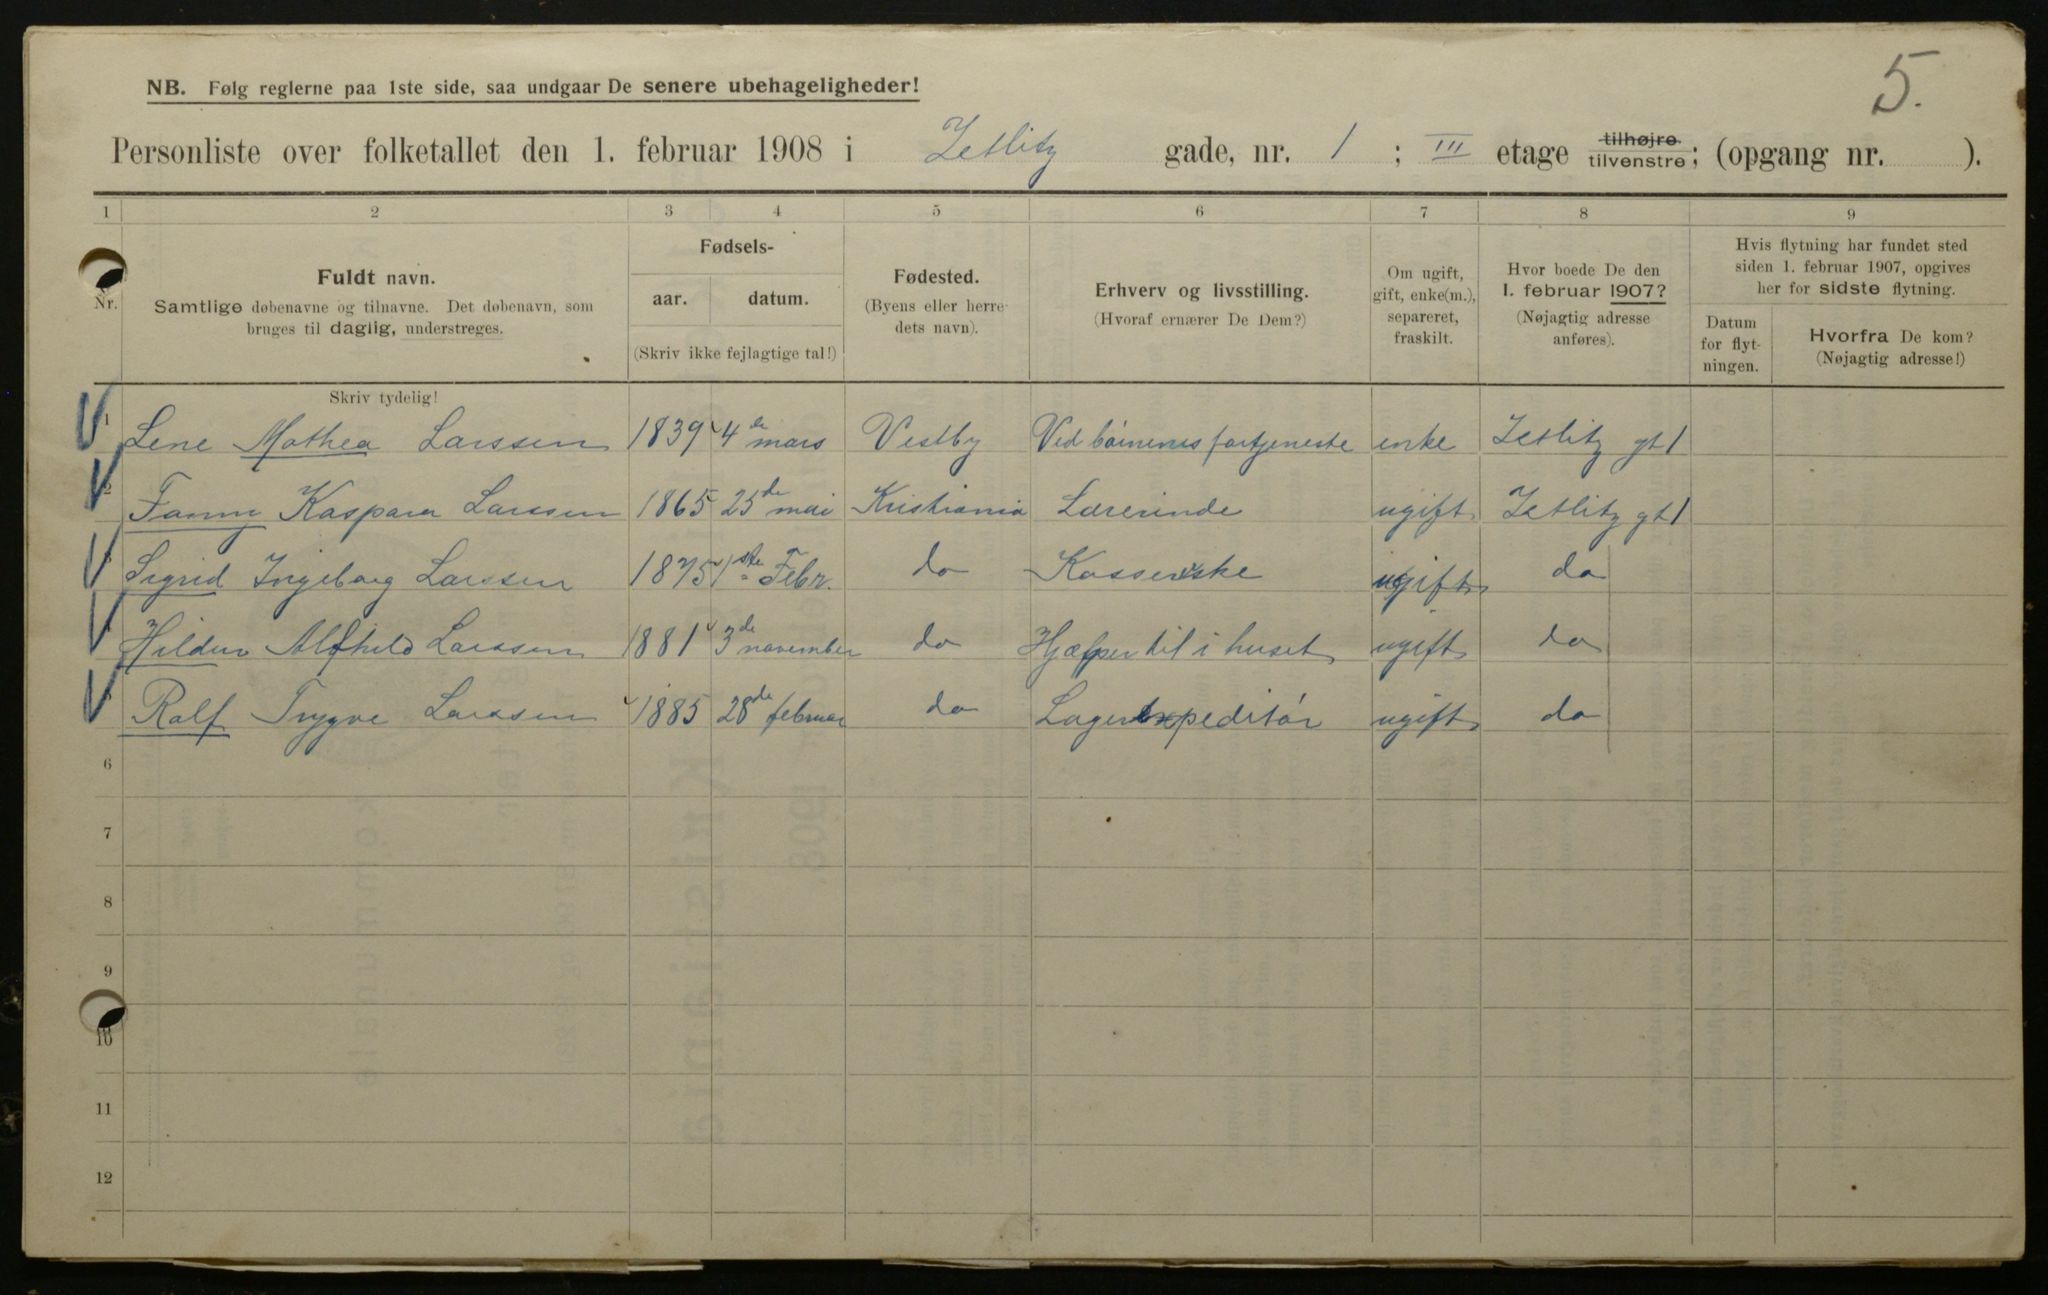 5.
NB. Følg reglerne paa 1ste side, saa undgaar De senere ubehageligheder!
Personliste over folketallet den 1. februar 1908 i Zetlitz gade, nr. 1 ; III etage tilhøjre tilvenstre; (opgang nr. ).
1 2 3 4 5 6 7 8 9
Nr.
Fuldt navn.
Samtlige døbenavne og tilnavne. Det døbenavn, som
bruges til daglig, understreges.
Skriv tydelig!
Fødsels-
aar. datum.
(Skriv ikke fejlagtige tal!)
Fødested.
(Byens eller herre-
dets navn).
Erhverv og livsstilling.
(Hvoraf ernærer De Dem?)
Om ugift,
gift, enke(m.),
separeret,
fraskilt.
Hvor boede De den
1. februar 1907?
(Nøjagtig adresse
anføres).
Hvis flytning har fundet sted
siden 1. februar 1907, opgives
her for sidste flytning.
Datum
for flyt-
ningen.
Hvorfra De kom?
(Nøjagtig adresse!)
1 Lene Mathea Larssen 1839 4de mars Vestby Ved børnenes fortjeneste enke Zetlitz gt 1
2 Fanny Kaspara Larssen 1865 25de mai Kristiania Lærerinde ugift Zetlitz gt 1
3 Sigrid Ingeborg Larssen 1875 1ste Febr. do Kasserske ugift do
4 Hildur Alfhild Larssen 1881 3de november do Hjælper til i huset ugift do
5 Ralf Trygve Larssen 1885 28de februar do Lagerexpeditør ugift do
6
7
8
9
10
11
12